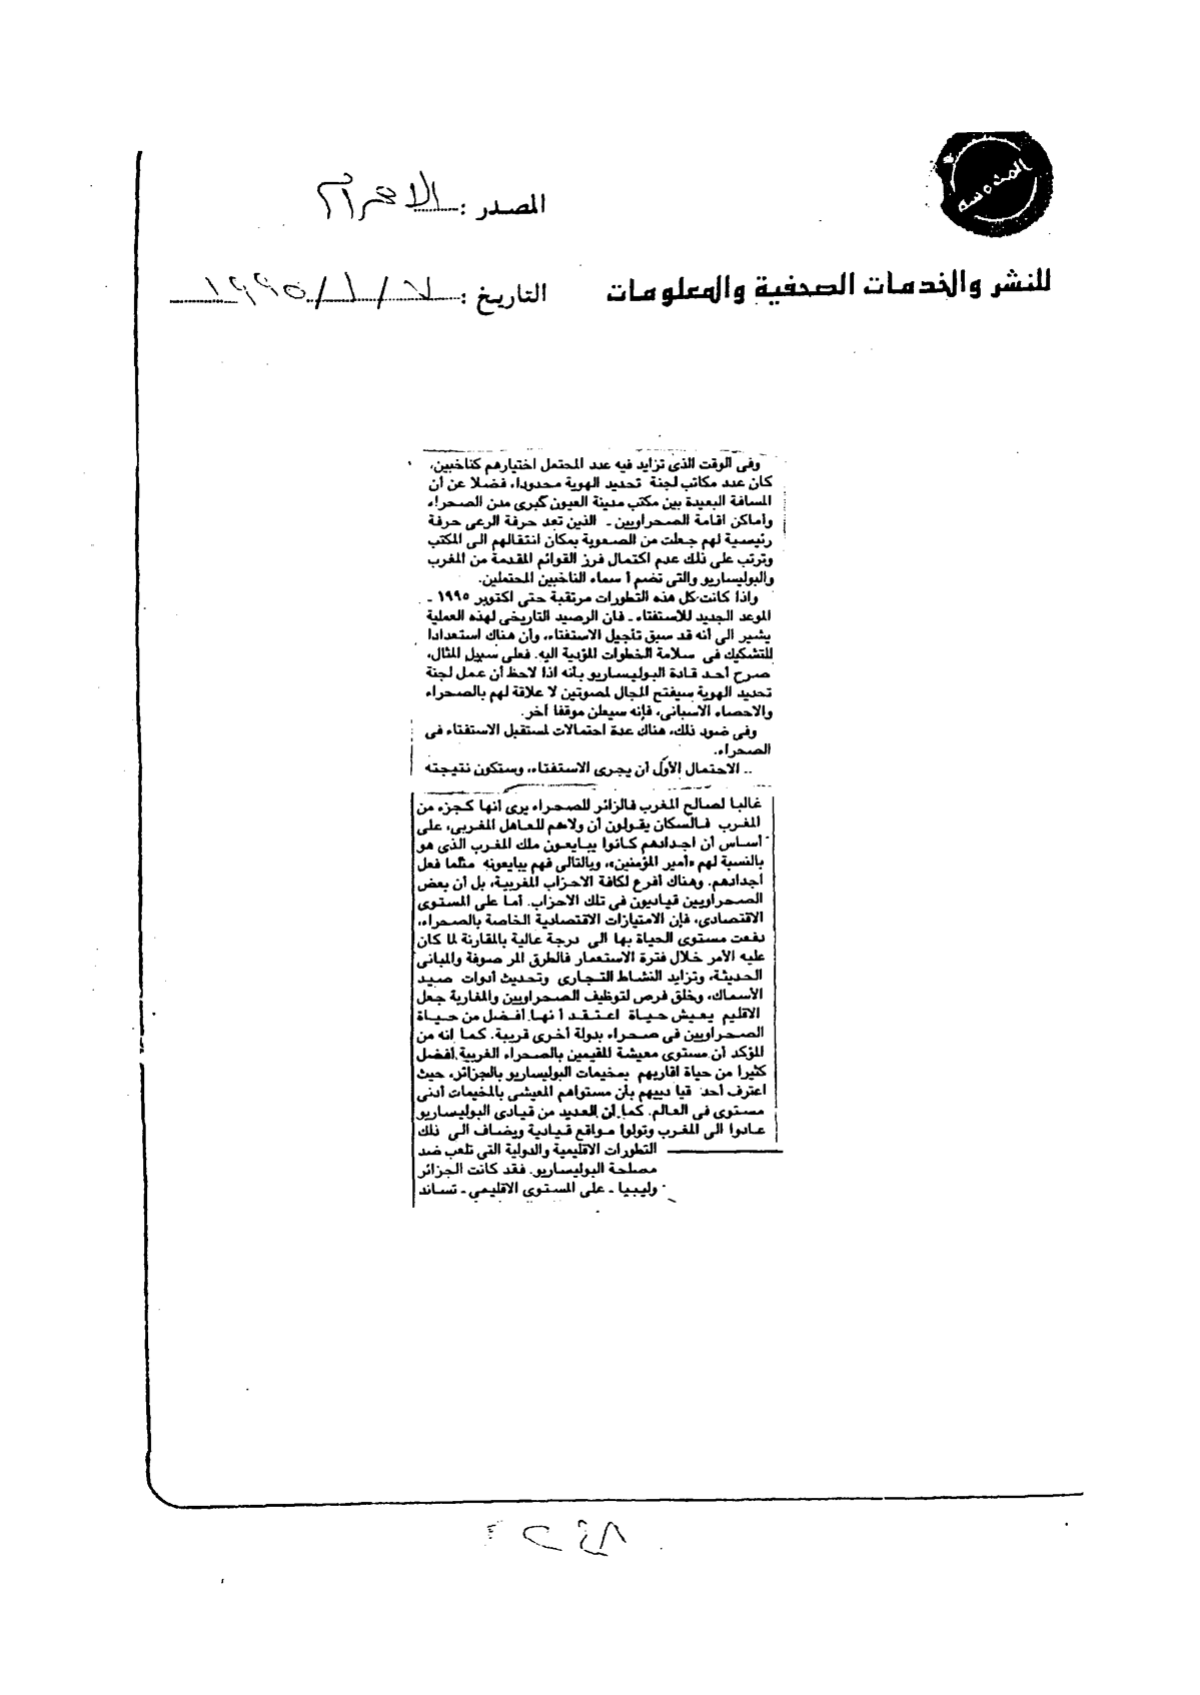 المصدر : الاهرام
للنشر والخدمات الصحفية والمعلومات
التاريخ : ٧ / ١ / ١٩٩٥
وفى الوقت الذى تزايد فيه عدد المحتمل اختيارهم كناخبين،
كان عدد مكاتب لجنة تحديد الهوية محدودا، فضلا عن أن
المسافة البعيدة بين مكتب مدينة العيون كبرى مدن الصحراء
وأماكن اقامة الصحراويين ـ الذين تعد حرفة الرعى حرفة
رئيسية لهم جعلت من الصعوبة بمكان انتقالهم الى المكتب
وترتب على ذلك عدم اكتمال فرز القوائم المقدمة من المغرب
والبوليساريو والتى تضم أسماء الناخبين المحتملين.
واذا كانت كل هذه التطورات مرتقبة حتى اكتوبر ١٩٩٥ ـ
الموعد الجديد للاستفتاء ـ فان الرصيد التاريخى لهذه العملية
يشير الى أنه قد سبق تأجيل الاستفتاء، وأن هناك استعدادا
للتشكيك فى سلامة الخطوات المؤدية اليه. فعلى سبيل المثال،
صرح أحد قادة البوليساريو بأنه اذا لاحظ أن عمل لجنة
تحديد الهوية سيفتح المجال لمصوتين لا علاقة لهم بالصحراء
والاحصاء الاسبانى، فإنه سيعلن موقفا أخر.
وفى ضوء ذلك، هناك عدة احتمالات لمستقبل الاستفتاء فى
الصحراء.
.. الاحتمال الأول أن يجرى الاستفتاء، وستكون نتيجته
غالبا لصالح المغرب فالزائر للصحراء يرى أنها كجزء من
المغرب فالسكان يقولون أن ولاءهم للعاهل المغربى، على
أساس أن اجدادهم كانوا يبايعون ملك المغرب الذى هو
بالنسبة لهم «أمير المؤمنين»، وبالتالى فهم يبايعونه مثلما فعل
أجدادهم. وهناك أفرع لكافة الاحزاب المغربية، بل أن بعض
الصحراويين قياديون فى تلك الاحزاب. أما على المستوى
الاقتصادى، فإن الامتيازات الاقتصادية الخاصة بالصحراء،
دفعت مستوى الحياة بها الى درجة عالية بالمقارنة لما كان
عليه الأمر خلال فترة الاستعمار فالطرق المرصوفة والمبانى
الحديثة، وتزايد النشاط التجارى وتحديث أدوات صيد
الأسماك، وخلق فرص لتوظيف الصحراويين والمغاربة جعل
الاقليم يعيش حياة اعتقد أنها أفضل من حياة
الصحراويين فى صحراء بدولة أخرى قريبة. كما إنه من
المؤكد أن مستوى معيشة المقيمين بالصحراء الغربية أفضل
كثيرا من حياة اقاربهم بمخيمات البوليساريو بالجزائر، حيث
اعترف أحد قيادييهم بأن مستواهم المعيشى بالمخيمات أدنى
مستوى فى العالم. كما أن العديد من قيادى البوليساريو
عادوا الى المغرب وتولوا مواقع قيادية ويضاف الى ذلك
التطورات الاقليمية والدولية التى تلعب ضد
مصلحة البوليساريو. فقد كانت الجزائر
وليبيا ـ على المستوى الاقليمى ـ تساند